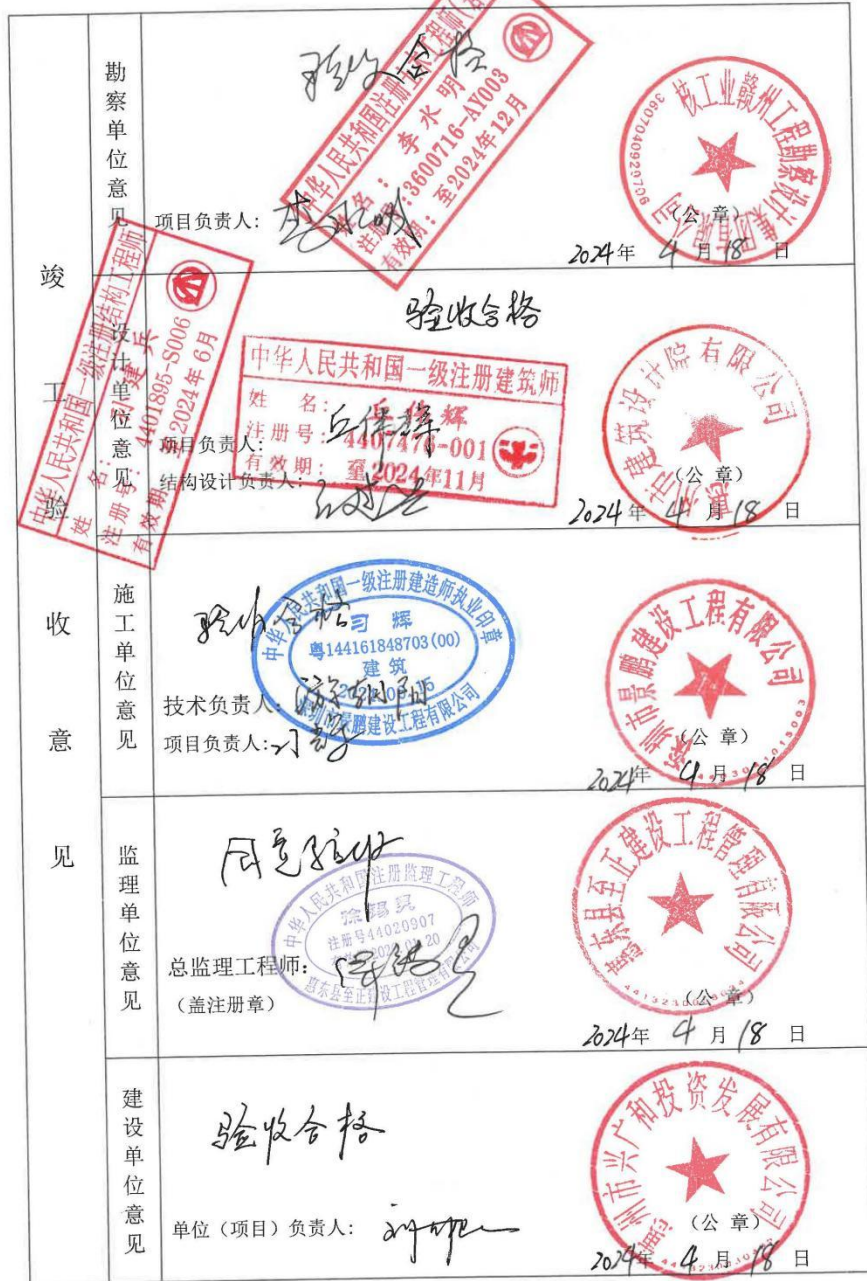 竣工验收意见
勘察单位意见
验收合格
中华人民共和国注册土木工程师(岩
姓名:李水明
注册号:3600716-AY003
有效期:至2024年12月
项目负责人:李水明
核工业赣州工程勘察设计集团有限公司
3607040920706
(公章)
2024年4月18日
设计单位意见
验收合格
中华人民共和国一级注册结构工程师
姓名:刘建兵
注册号:4401895-S006
有效期:至2024年6月
中华人民共和国一级注册建筑师
姓名:丘伟辉
注册号:4407476-001
有效期:至2024年11月
项目负责人:丘伟辉
结构设计负责人:刘建兵
惠州市建筑设计院有限公司
(公章)
2024年4月18日
施工单位意见
验收合格
中华人民共和国一级注册建造师执业印章
习辉
粤144161848703(00)
建筑
深圳市景鹏建设工程有限公司
技术负责人:
项目负责人:习辉
深圳市景鹏建设工程有限公司
(公章)
2024年4月18日
监理单位意见
同意验收
中华人民共和国注册监理工程师
注册号44020907
惠东县至正建设工程管理有限公司
总监理工程师:
(盖注册章)
惠东县至正建设工程管理有限公司
(公章)
2024年4月18日
建设单位意见
验收合格
单位(项目)负责人:
惠州市兴广和投资发展有限公司
(公章)
2024年4月18日